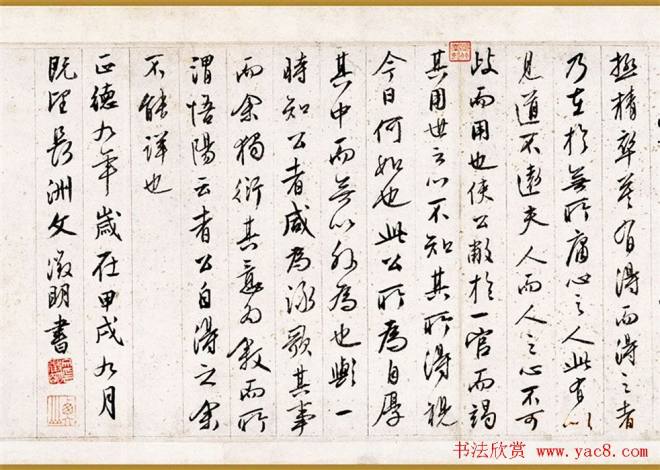 極精卒莫有得而得之者
乃在於無所庸心之人此有以
見道不遠夫人而人之心不可
歧而用也使公敝於一官而竭
其用世之心不知其所得視
今日何如也此公所為自厚
其中而無以外為也歟一
時知公者咸為詠歌其事
而余獨衍其意為敘而所
謂悟陽云者公自得之余
不能詳也
正德九年歲在甲戌九月
既望長洲文徵明書
书法欣赏 www.yac8.com